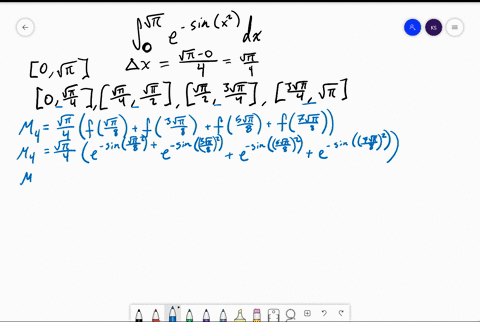 ∫₀^√π e^-sin(x²) dx
[0,√π] Δx = (√π-0)/4 = √π/4
[0,√π/4],[√π/4,√π/2],[√π/2,3√π/4],[3√π/4,√π]
M₄ = √π/4 (f(√π/8) + f(3√π/8) + f(5√π/8) + f(7√π/8))
M₄ = √π/4 (e^-sin((√π/8)²) + e^-sin((3√π/8)²) + e^-sin((5√π/8)²) + e^-sin((7√π/8)²))
M
KS